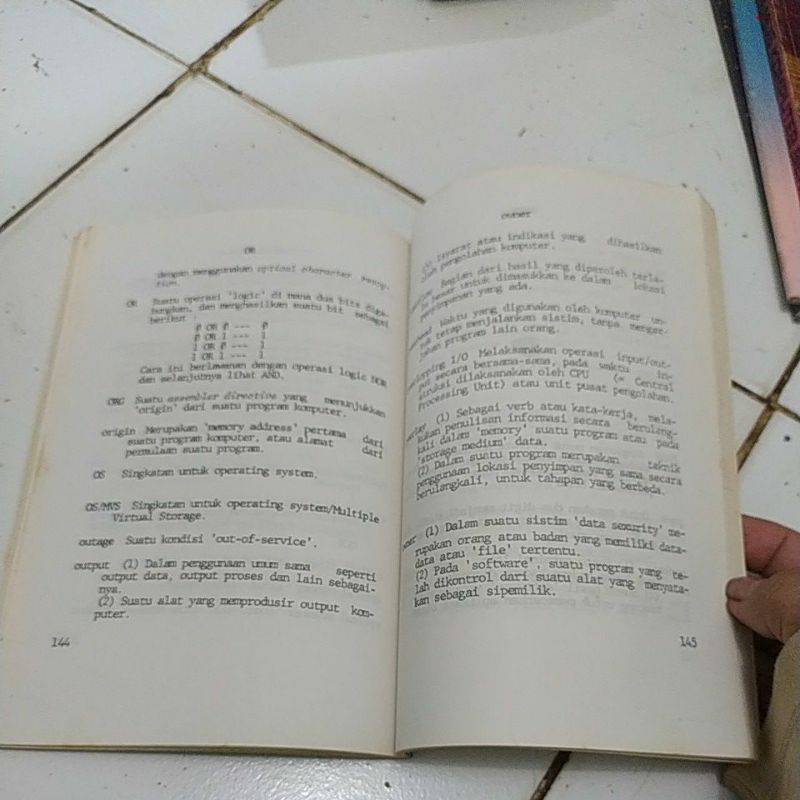 OR
dengan menggunakan optical character recog-
tion.
OR Suatu operasi 'logic' di mana dua bits diga-
bungkan, dan menghasilkan suatu bit sebagai
berikut :
0 OR 0 --- 0
0 OR 1 --- 1
1 OR 0 --- 1
1 OR 1 --- 1
Cara ini berlawanan dengan operasi logic NOR
dan selanjutnya lihat AND.
ORG Suatu assembler directive yang menunjukkan
'origin' dari suatu program komputer.
origin Merupakan 'memory address' pertama dari
suatu program komputer, atau alamat dari
permulaan suatu program.
OS Singkatan untuk operating system.
OS/MVS Singkatan untuk operating system/Multiple
Virtual Storage.
outage Suatu kondisi 'out-of-service'.
output (1) Dalam penggunaan umum sama seperti
output data, output proses dan lain sebagai-
nya.
(2) Suatu alat yang memprodusir output kom-
puter.
144
owner
isyarat atau indikasi yang dihasilkan
oleh pengolahan komputer.
Bagian dari hasil yang diperoleh terla-
besar untuk dimasukkan ke dalam lokasi
penyimpanan yang ada.
Waktu yang digunakan oleh komputer un-
tuk tetap menjalankan sistim, tanpa menger-
program lain orang.
I/O Melaksanakan operasi input/out-
put secara bersama-sama, pada waktu in-
struksi dilaksanakan oleh CPU (= Central
Processing Unit) atau unit pusat pengolahan.
(1) Sebagai verb atau kata-kerja, mela-
kukan penulisan informasi secara berulang-
kali dalam 'memory' suatu program atau pada
'storage medium' data.
(2) Dalam suatu program merupakan teknik
penggunaan lokasi penyimpan yang sama secara
berulangkali, untuk tahapan yang berbeda.
(1) Dalam suatu sistim 'data security' me-
rupakan orang atau badan yang memiliki data-
data atau 'file' tertentu.
(2) Pada 'software', suatu program yang te-
lah dikontrol dari suatu alat yang menyata-
kan sebagai sipemilik.
145